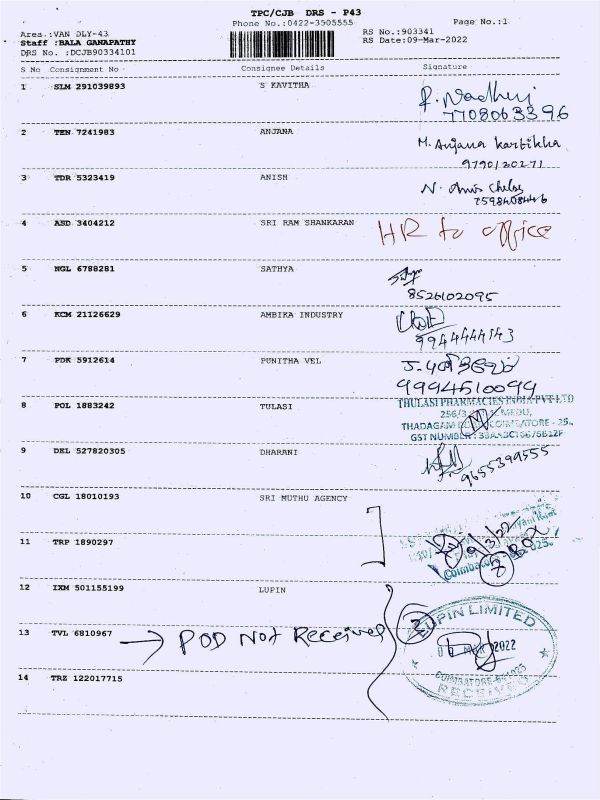 TPC/CJB DRS - P43
Phone No.:0422-3505555
Page No.:1
Area :VAN DLY-43
RS No.:903341
Staff :BALA GANAPATHY
RS Date:09-Mar-2022
DRS No. :DCJB90334101
S No Consignment No Consignee Details Signature
1 SLM 291039893 S KAVITHA
7708063396
2 TEN 7241983 ANJANA M. Anjana Karthikha
9790120271
3 TDR 5323419 ANISH
7598408446
4 ASD 3404212 SRI RAM SHANKARAN HR to office
5 NGL 6788281 SATHYA
8526102095
6 KCM 21126629 AMBIKA INDUSTRY
9944444543
7 PDK 5912614 PUNITHA VEL
9994510094
8 POL 1883242 TULASI THULASI PHARMACIES INDIA PVT LTD
256/3 MEDU,
THADAGAM COIMBATORE - 25.
GST NUMBER:
9 DEL 527820305 DHARANI
9655399555
10 CGL 18010193 SRI MUTHU AGENCY
11 TRP 1890297
9/3/22
Box
12 IXM 501155199 LUPIN
LUPIN LIMITED
13 TVL 6810967 → POD Not Received
MAR 2022
COIMBATORE-641025
RECEIVED
14 TRZ 122017715